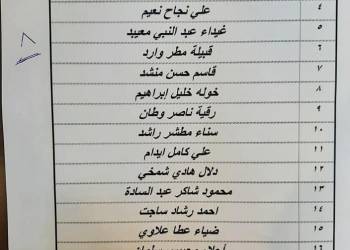 علي نجاح نعيم ٤
غيداء عبد النبي معيبد ٥
قبيلة مطر وارد ٦
قاسم حسن منشد ٧
خوله خليل إبراهيم ٨
رقية ناصر وطان ٩
سناء مطشر راشد ١٠
علي كامل ايدام ١١
دلال هادي شمخي ١٢
محمود شاكر عبد السادة ١٣
احمد رشاد ساجت ١٤
ضياء عطا علاوي ١٥
١٦